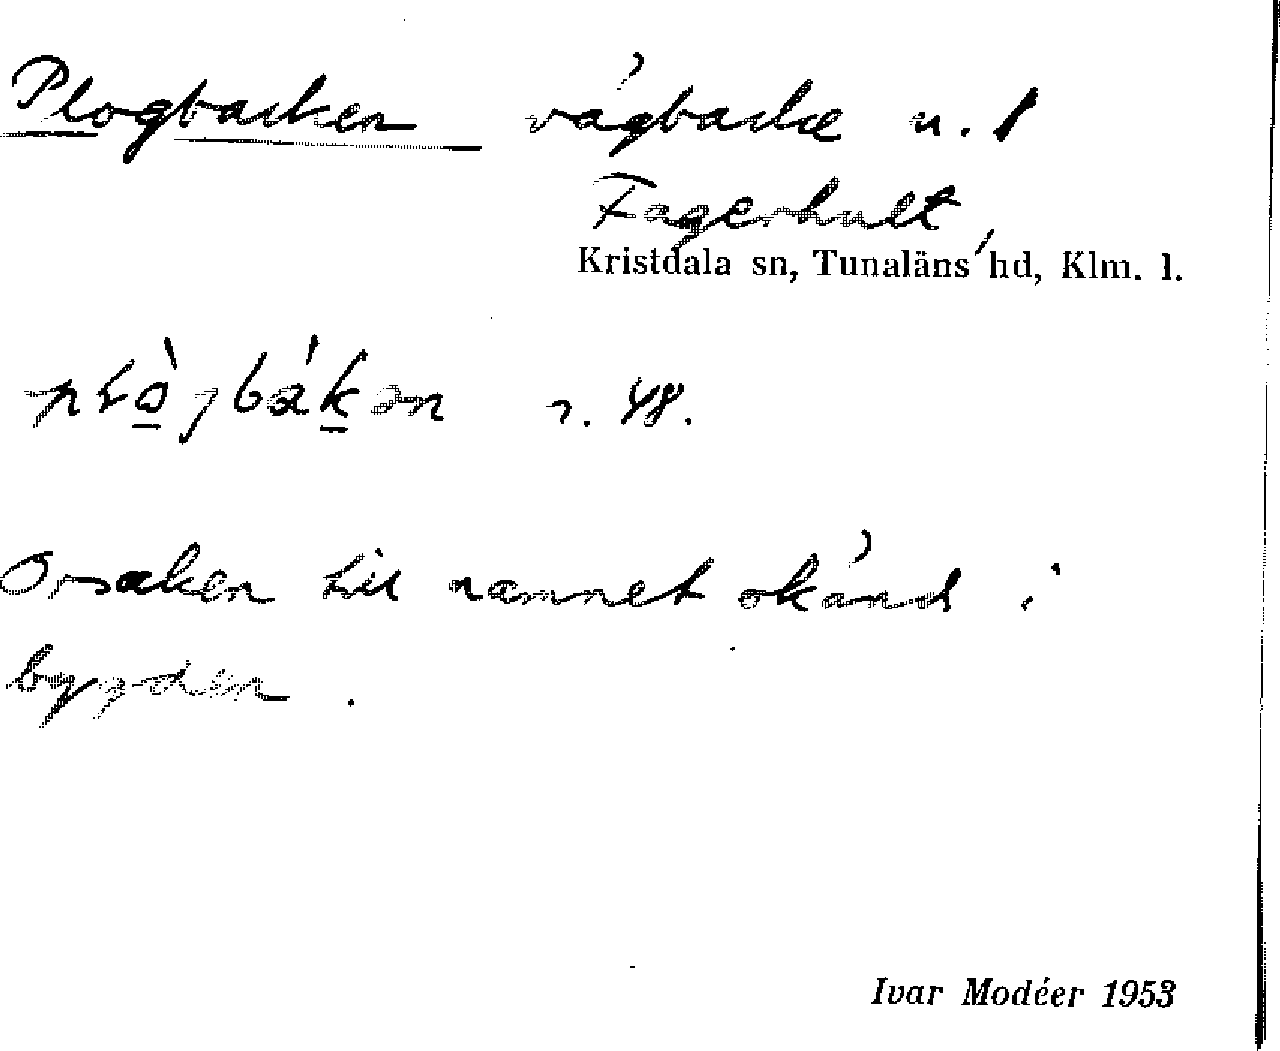 Plogbacken vägbacke n. 1
Fagerhult,
Kristdala sn, Tunaläns hd, Klm. l.
48.
Orsaken till namnet okänd i
bygden.
Ivar Modéer 1953